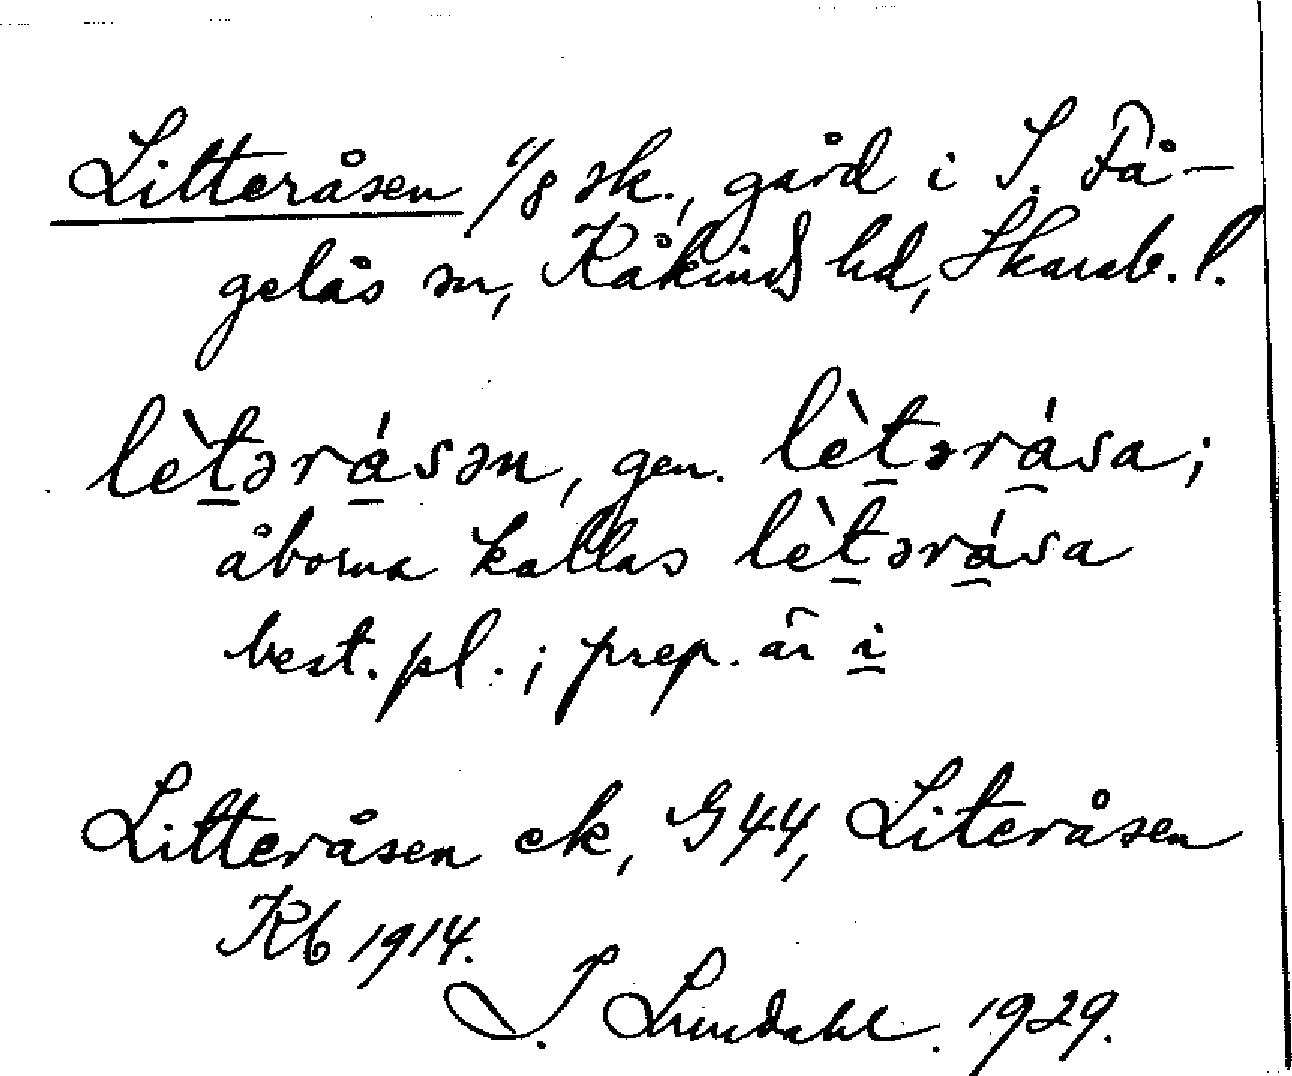 Litteråsen 1/8 sk., gård i S. Få-
gelås sn, Kåkinds hd, Skarab. l.
lètərásən, gen. lètərása;
åborna kallas lètərása
best. pl.; prep. är i
Litteråsen ek, G44, Literåsen
Kb 1914.
I. Lundahl. 1929.